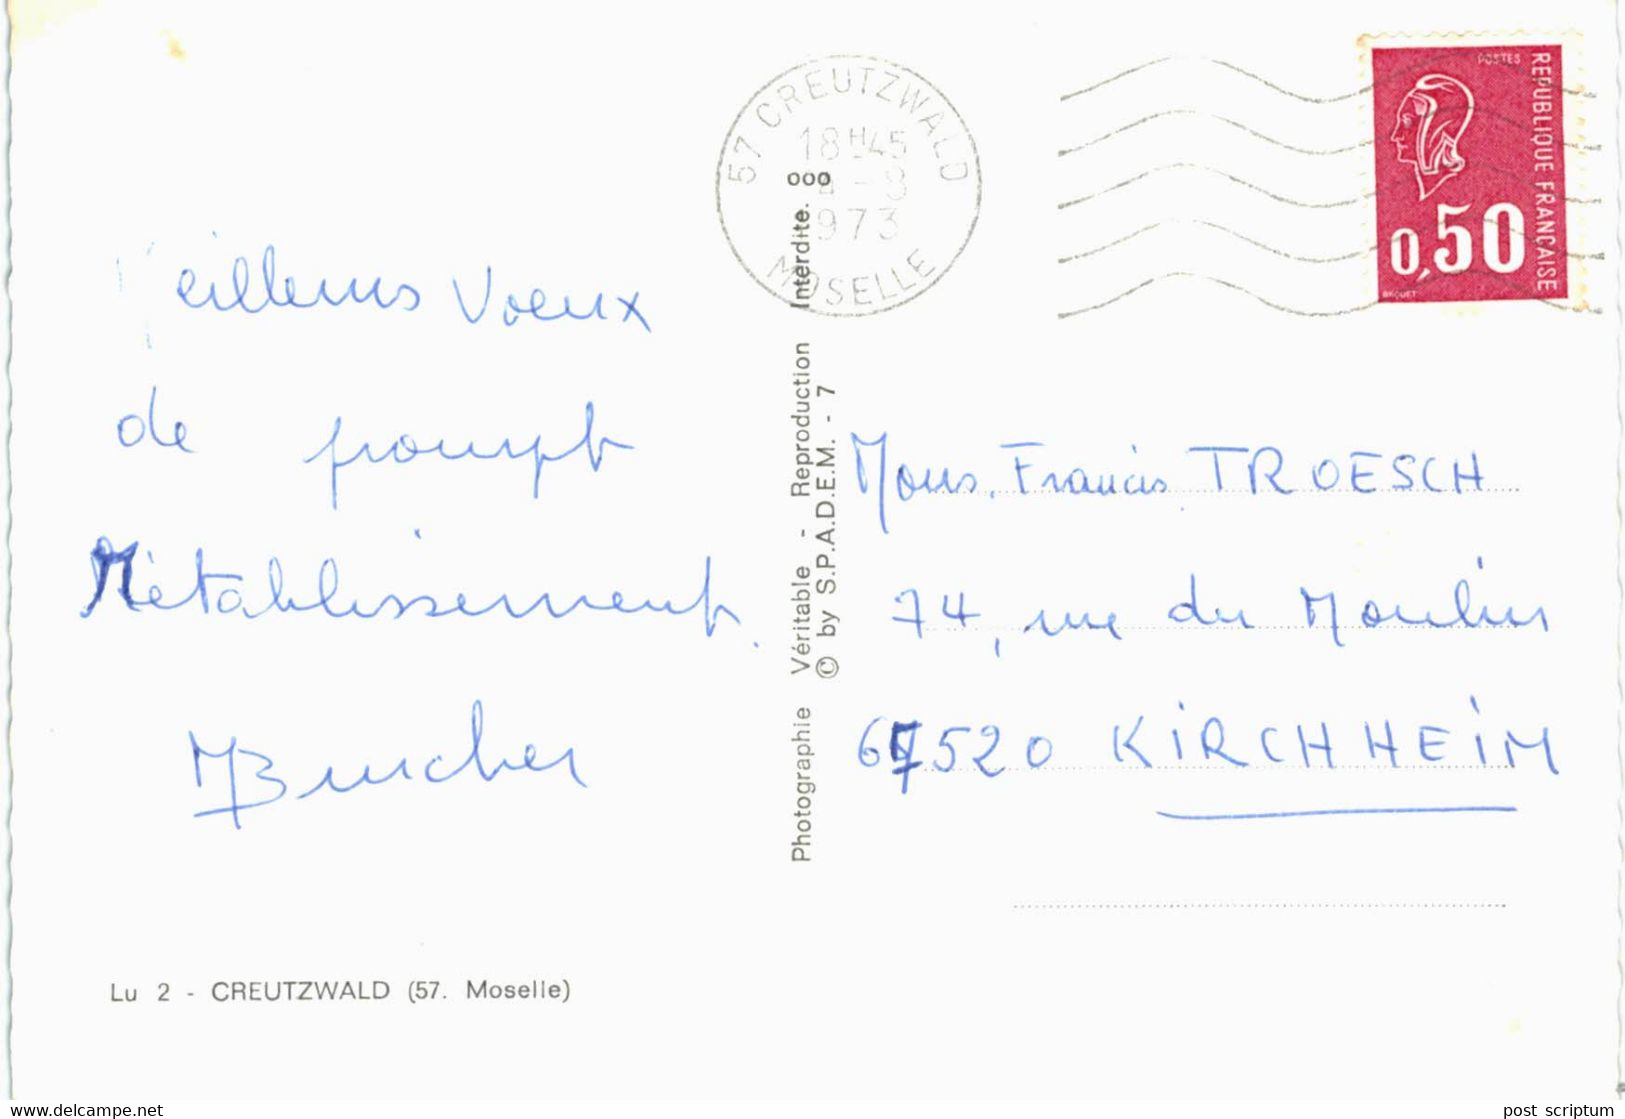 57 CREUTZWALD
18H45
-8
1973
MOSELLE
POSTES
REPUBLIQUE FRANÇAISE
0,50
BEQUET
Meilleurs voeux
de prompt
rétablissement.
MBucher
Photographie Véritable - Reproduction Interdite. ooo
© by S.P.A.D.E.M. - 7
Mons. Francis TROESCH
74, rue du Moulin
67520 KIRCHHEIM
Lu 2 - CREUTZWALD (57. Moselle)
www.delcampe.net
post_scriptum